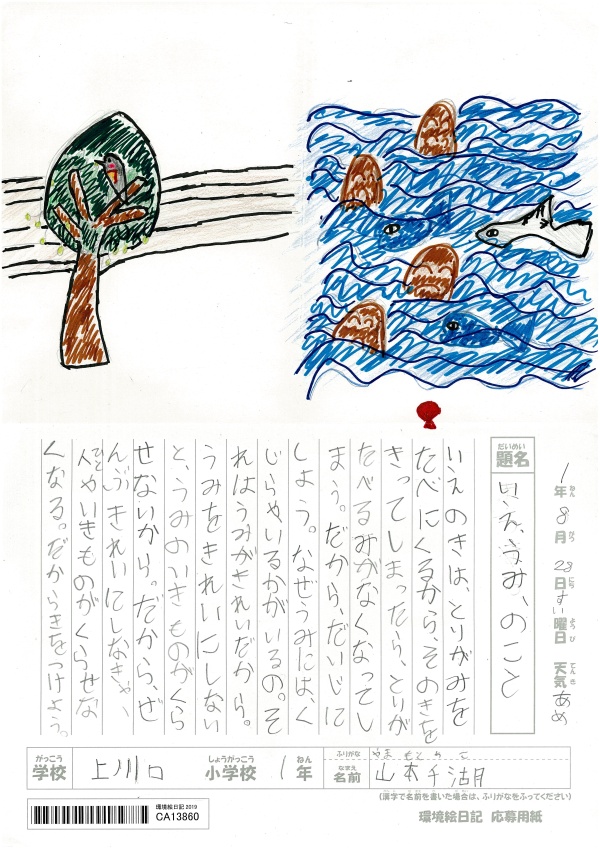 1年8月28日すい曜日 天気あめ
ねん がつ にち ようび てんき
だいめい
題名 いえ、うみ、のこと
いえのきは、とりがみを
たべにくるから、そのきを
きってしまったら、とりが
たべるみがなくなってし
まう。だから、だいじに
しよう。なぜうみには、く
じらやいるかがいるの。そ
れはうみがきれいだから。
うみをきれいにしない
と、うみのいきものがくら
せないから。だから、ぜ
んぶきれいにしなきゃ、
人やいきものがくらせな
ひと
くなる。だからきをつけよう。
がっこう しょうがっこう ねん ふりがな やまもと こ
学校 上川口 小学校 1年 なまえ 名前 山本千湖
(漢字で名前を書いた場合は、ふりがなをふってください)
環境絵日記 2019
CA13860
環境絵日記 応募用紙